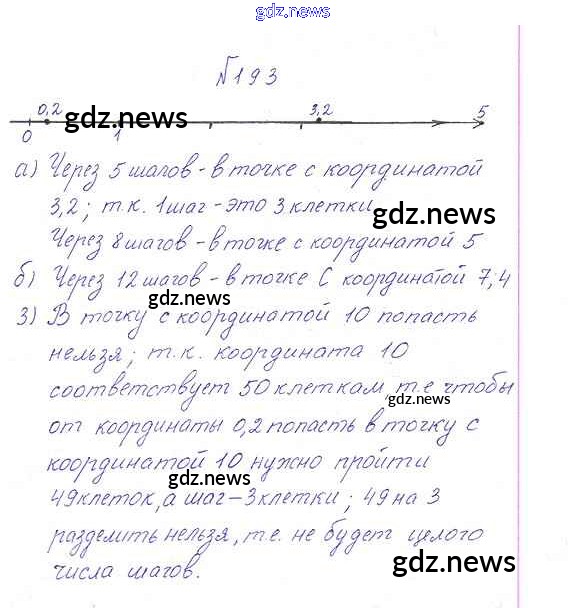 gdz.news
№193
0,2 3,2 5
gdz.news
0 1
а) Через 5 шагов - в точке с координатой
3,2; т.к. 1 шаг - это 3 клетки
gdz.news
Через 8 шагов - в точке с координатой 5
б) Через 12 шагов - в точке С координатой 7,4
gdz.news
3) В точку с координатой 10 попасть
нельзя; т.к. координата 10
соответствует 50 клеткам, т.е чтобы
gdz.news
от координаты 0,2 попасть в точку с
координатой 10 нужно пройти
gdz.news
49 клеток, а шаг - 3 клетки; 49 на 3
разделить нельзя, т.е. не будет целого
gdz.news
числа шагов.